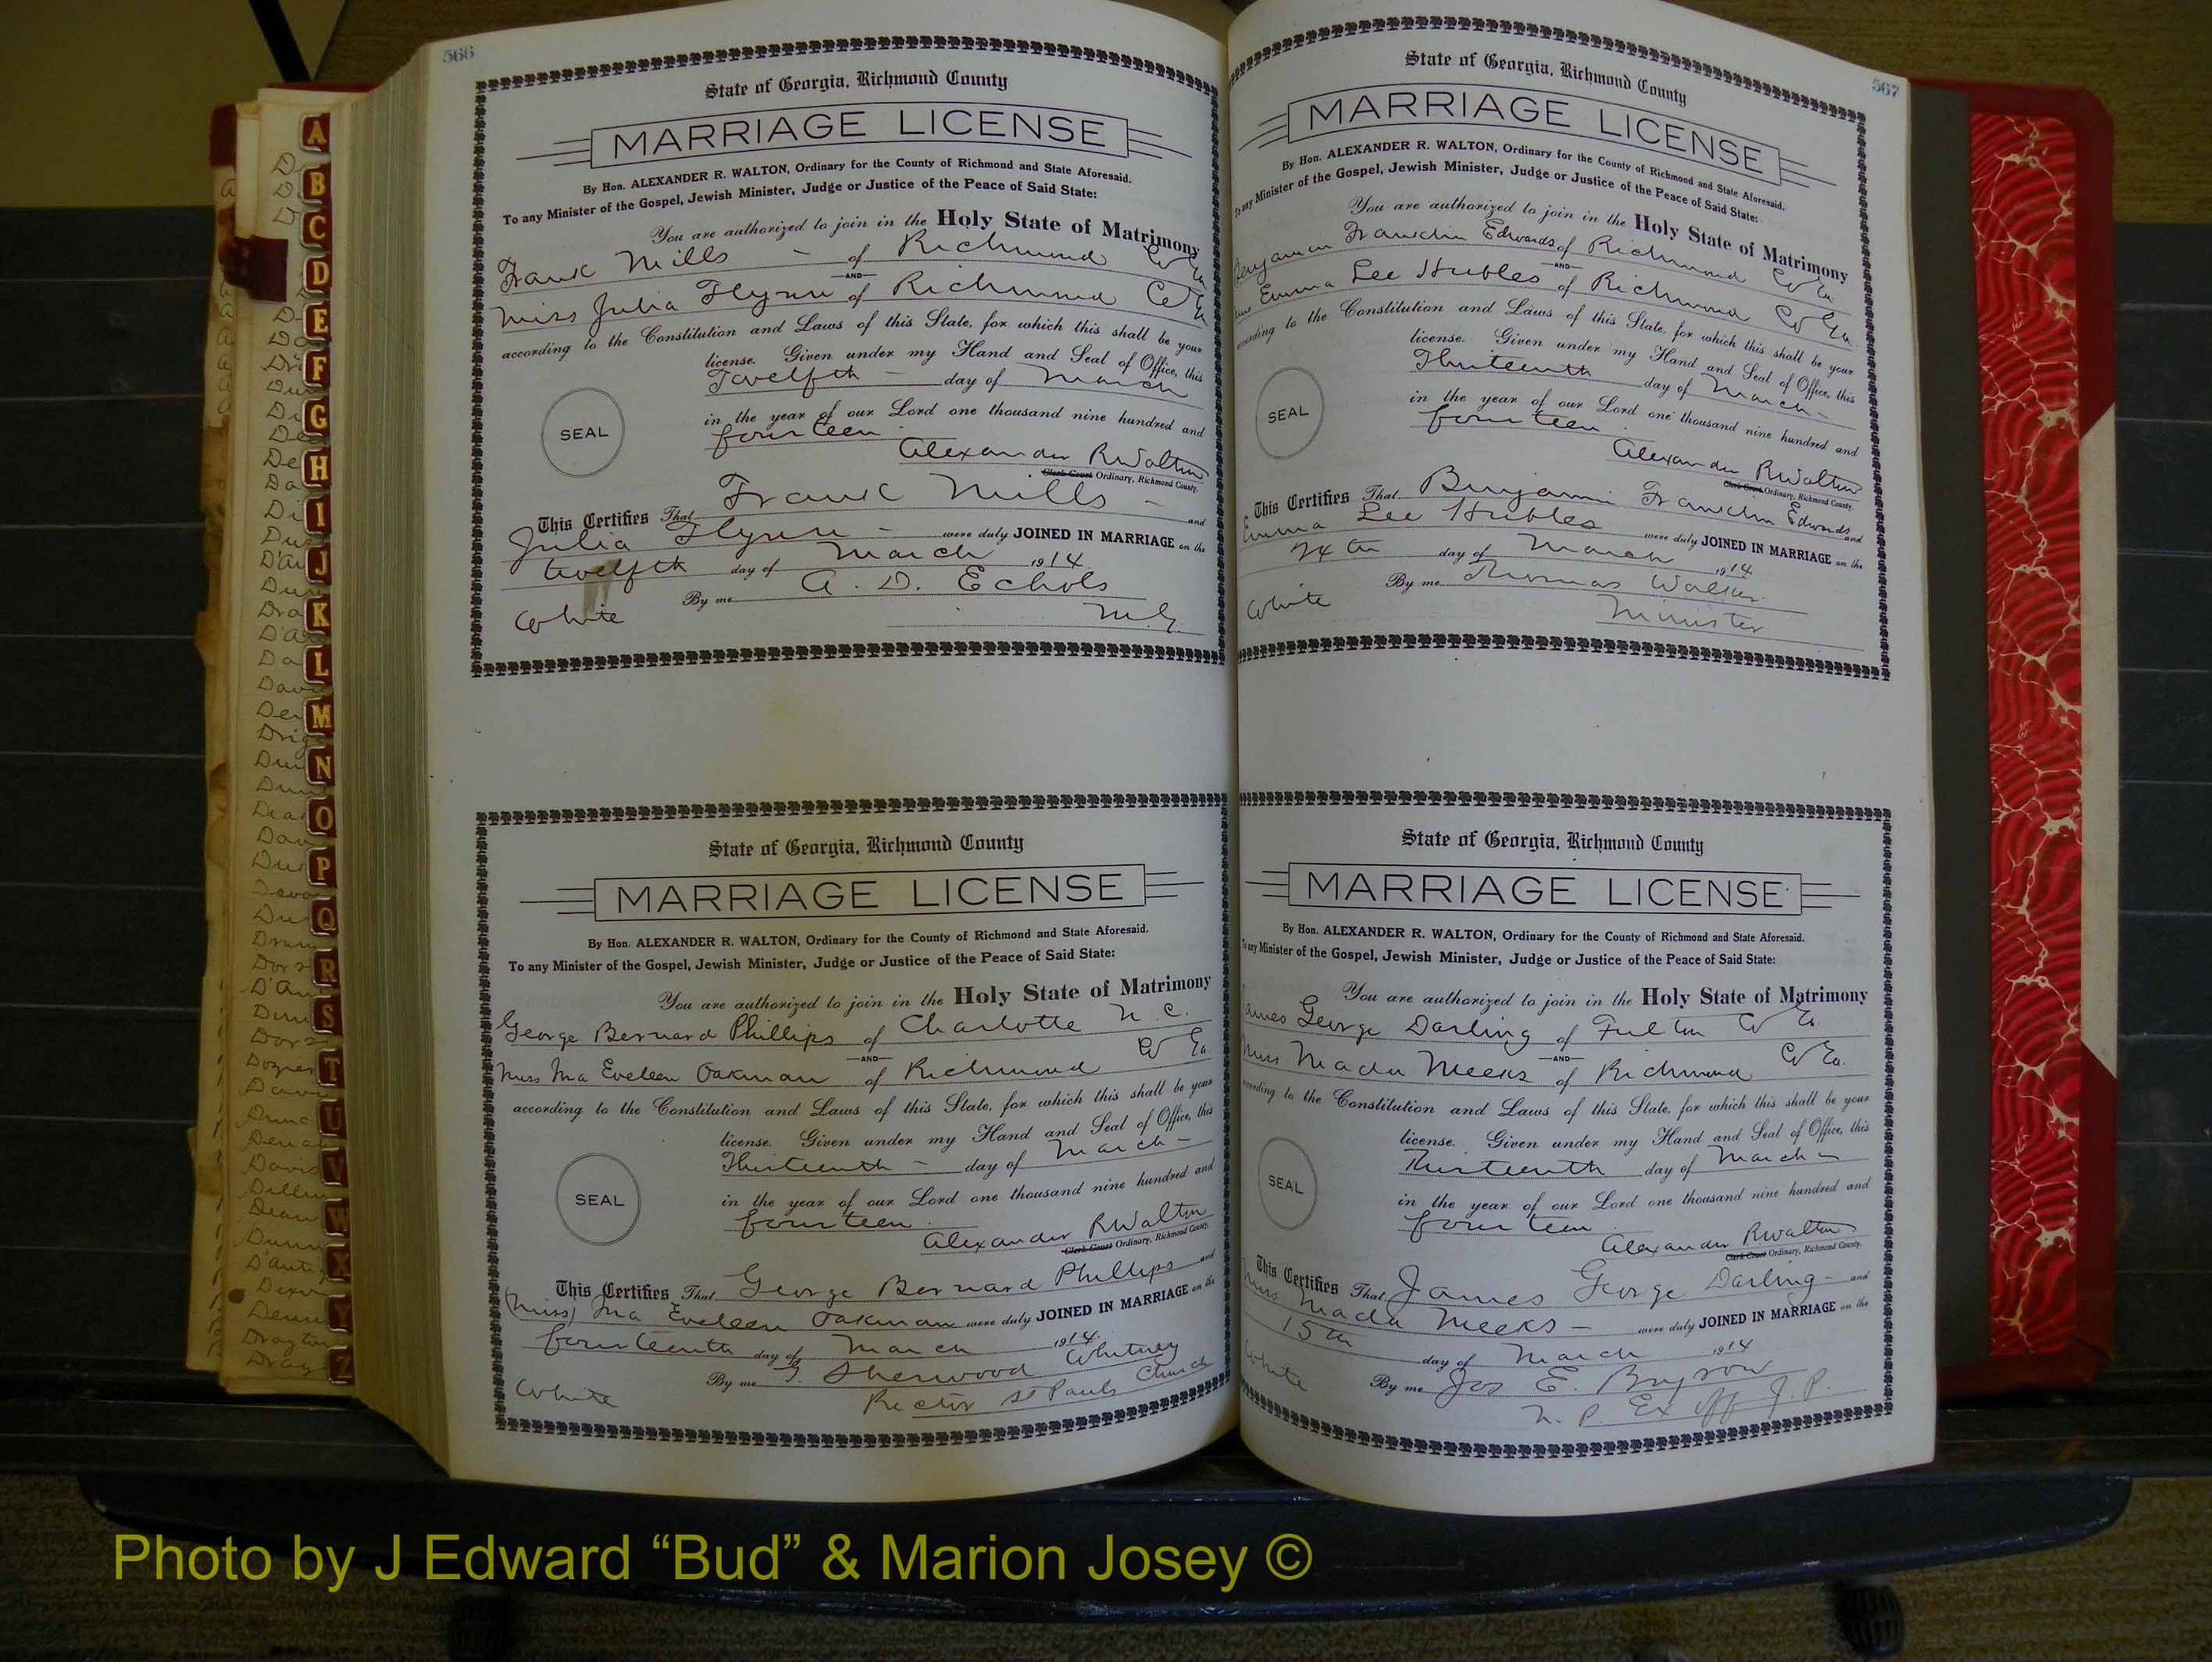 566
State of Georgia, Richmond County
MARRIAGE LICENSE
By Hon. ALEXANDER R. WALTON, Ordinary for the County of Richmond and State Aforesaid.
To any Minister of the Gospel, Jewish Minister, Judge or Justice of the Peace of Said State:
You are authorized to join in the Holy State of Matrimony
Frank Mills - of Richmond Co Ga
AND
Miss Julia Flynn of Richmond Co Ga
according to the Constitution and Laws of this State, for which this shall be your
license. Given under my Hand and Seal of Office, this
Twelfth - day of March
in the year of our Lord one thousand nine hundred and
fourteen
SEAL
Alexander R Walton
Clerk Court Ordinary, Richmond County.
This Certifies That Frank Mills - and
Julia Flynn - were duly JOINED IN MARRIAGE on the
twelfth day of March 1914
By me A. D. Echols
White M.G.
State of Georgia, Richmond County
MARRIAGE LICENSE
By Hon. ALEXANDER R. WALTON, Ordinary for the County of Richmond and State Aforesaid.
To any Minister of the Gospel, Jewish Minister, Judge or Justice of the Peace of Said State:
You are authorized to join in the Holy State of Matrimony
George Bernard Phillips of Charlotte N.C.
AND
Miss Ma Eveleen Oakman of Richmond Co Ga
according to the Constitution and Laws of this State, for which this shall be your
license. Given under my Hand and Seal of Office, this
Thirteenth - day of March -
in the year of our Lord one thousand nine hundred and
fourteen
SEAL
Alexander R Walton
Clerk Court Ordinary, Richmond County.
This Certifies That George Bernard Phillips and
(Miss) Ma Eveleen Oakman were duly JOINED IN MARRIAGE on the
fourteenth day of March 1914.
By me G. Sherwood Whitney
White Rector St Pauls Church
567
State of Georgia, Richmond County
MARRIAGE LICENSE
By Hon. ALEXANDER R. WALTON, Ordinary for the County of Richmond and State Aforesaid.
To any Minister of the Gospel, Jewish Minister, Judge or Justice of the Peace of Said State:
You are authorized to join in the Holy State of Matrimony
Benjamin Franklin Edwards of Richmond Co Ga
AND
Miss Emma Lee Hubles of Richmond Co Ga
according to the Constitution and Laws of this State, for which this shall be your
license. Given under my Hand and Seal of Office, this
Thirteenth day of March -
in the year of our Lord one thousand nine hundred and
fourteen
SEAL
Alexander R Walton
Clerk Court Ordinary, Richmond County.
This Certifies That Benjamin Franklin Edwards and
Emma Lee Hubles were duly JOINED IN MARRIAGE on the
24th day of March 1914
By me Thomas Walker
White Minister
State of Georgia, Richmond County
MARRIAGE LICENSE
By Hon. ALEXANDER R. WALTON, Ordinary for the County of Richmond and State Aforesaid.
To any Minister of the Gospel, Jewish Minister, Judge or Justice of the Peace of Said State:
You are authorized to join in the Holy State of Matrimony
James George Darling of Fulton Co Ga
AND
Miss Mada Meeks of Richmond Co Ga.
according to the Constitution and Laws of this State, for which this shall be your
license. Given under my Hand and Seal of Office, this
Thirteenth day of March -
in the year of our Lord one thousand nine hundred and
fourteen
SEAL
Alexander R Walton
Clerk Court Ordinary, Richmond County.
This Certifies That James George Darling - and
Miss Mada Meeks - were duly JOINED IN MARRIAGE on the
15th day of March 1914
White By me Jos E. Bryson
N. P. Ex off J. P.
A
B
C
D
E
F
G
H
I
J
K
L
M
N
O
P
Q
R
S
T
U
V
W
X
Y
Z
Photo by J Edward “Bud” & Marion Josey ©